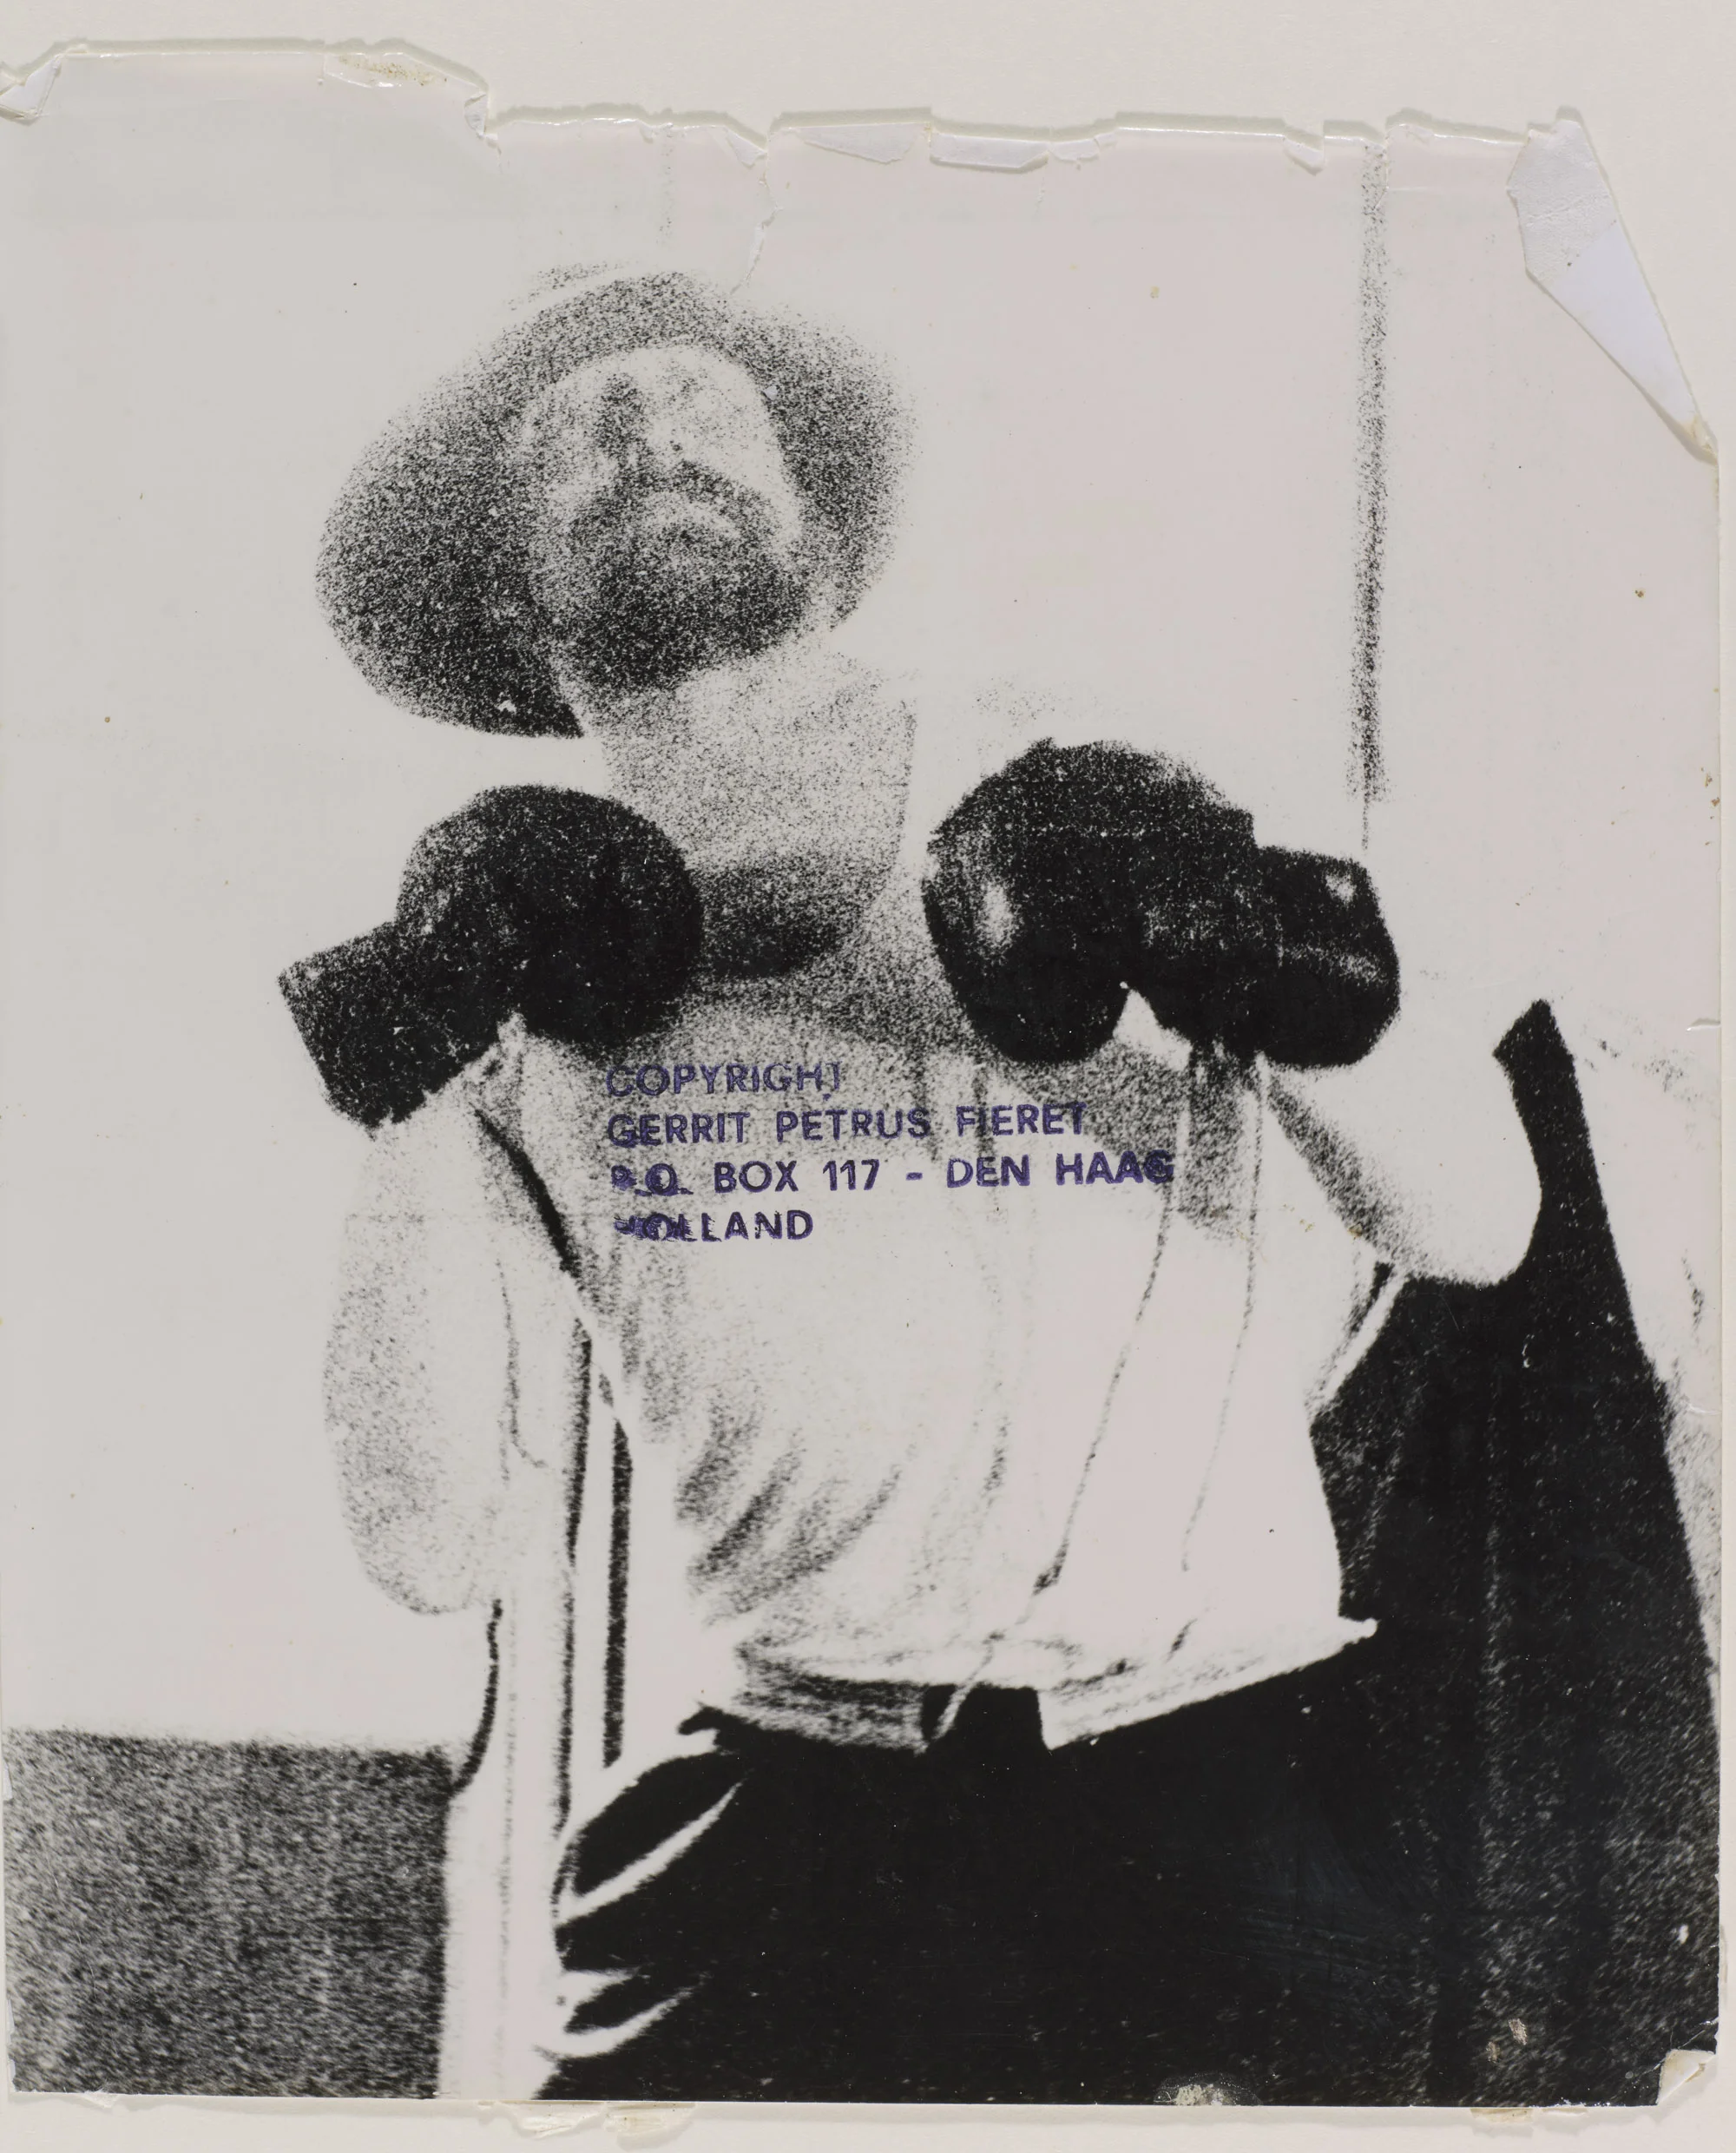 COPYRIGHT
GERRIT PETRUS FIERET
P.O. BOX 117 - DEN HAAG
HOLLAND